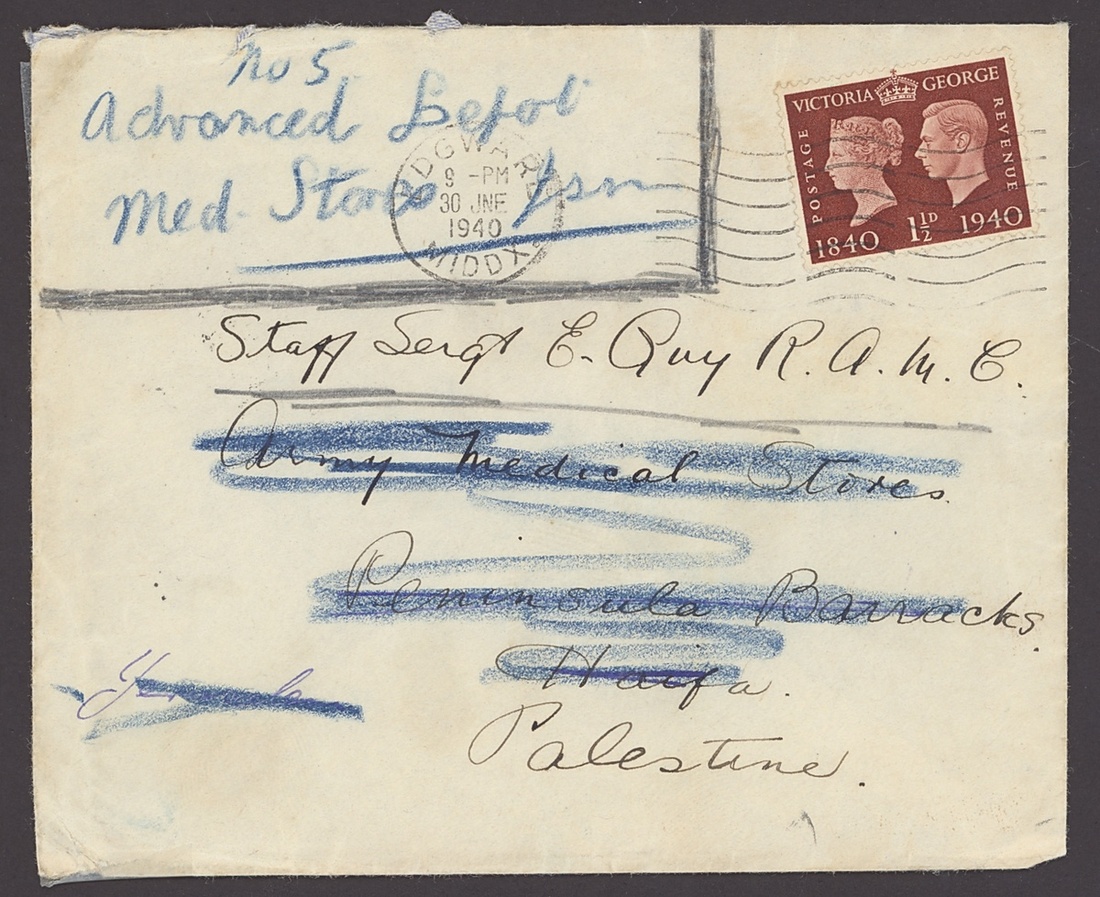 No 5.
Advanced Depot
Med. Stores Jsn
EDGWARE
9 -PM
30 JNE
1940
MIDDX
VICTORIA GEORGE
POSTAGE
REVENUE
1840 1½D 1940
Staff Sergt E. Quy R. A. M. C.
Army Medical Stores
Peninsula Barracks.
Haifa.
Palestine.